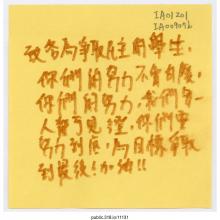 IA01201
IA009096
致各為爭取民主的學生,
你們的努力不會白廢,
你們的努力,我們每一
人都可見證,你們要
努力到底,為目標爭取
到最後!加油!!
public.318.io/11131